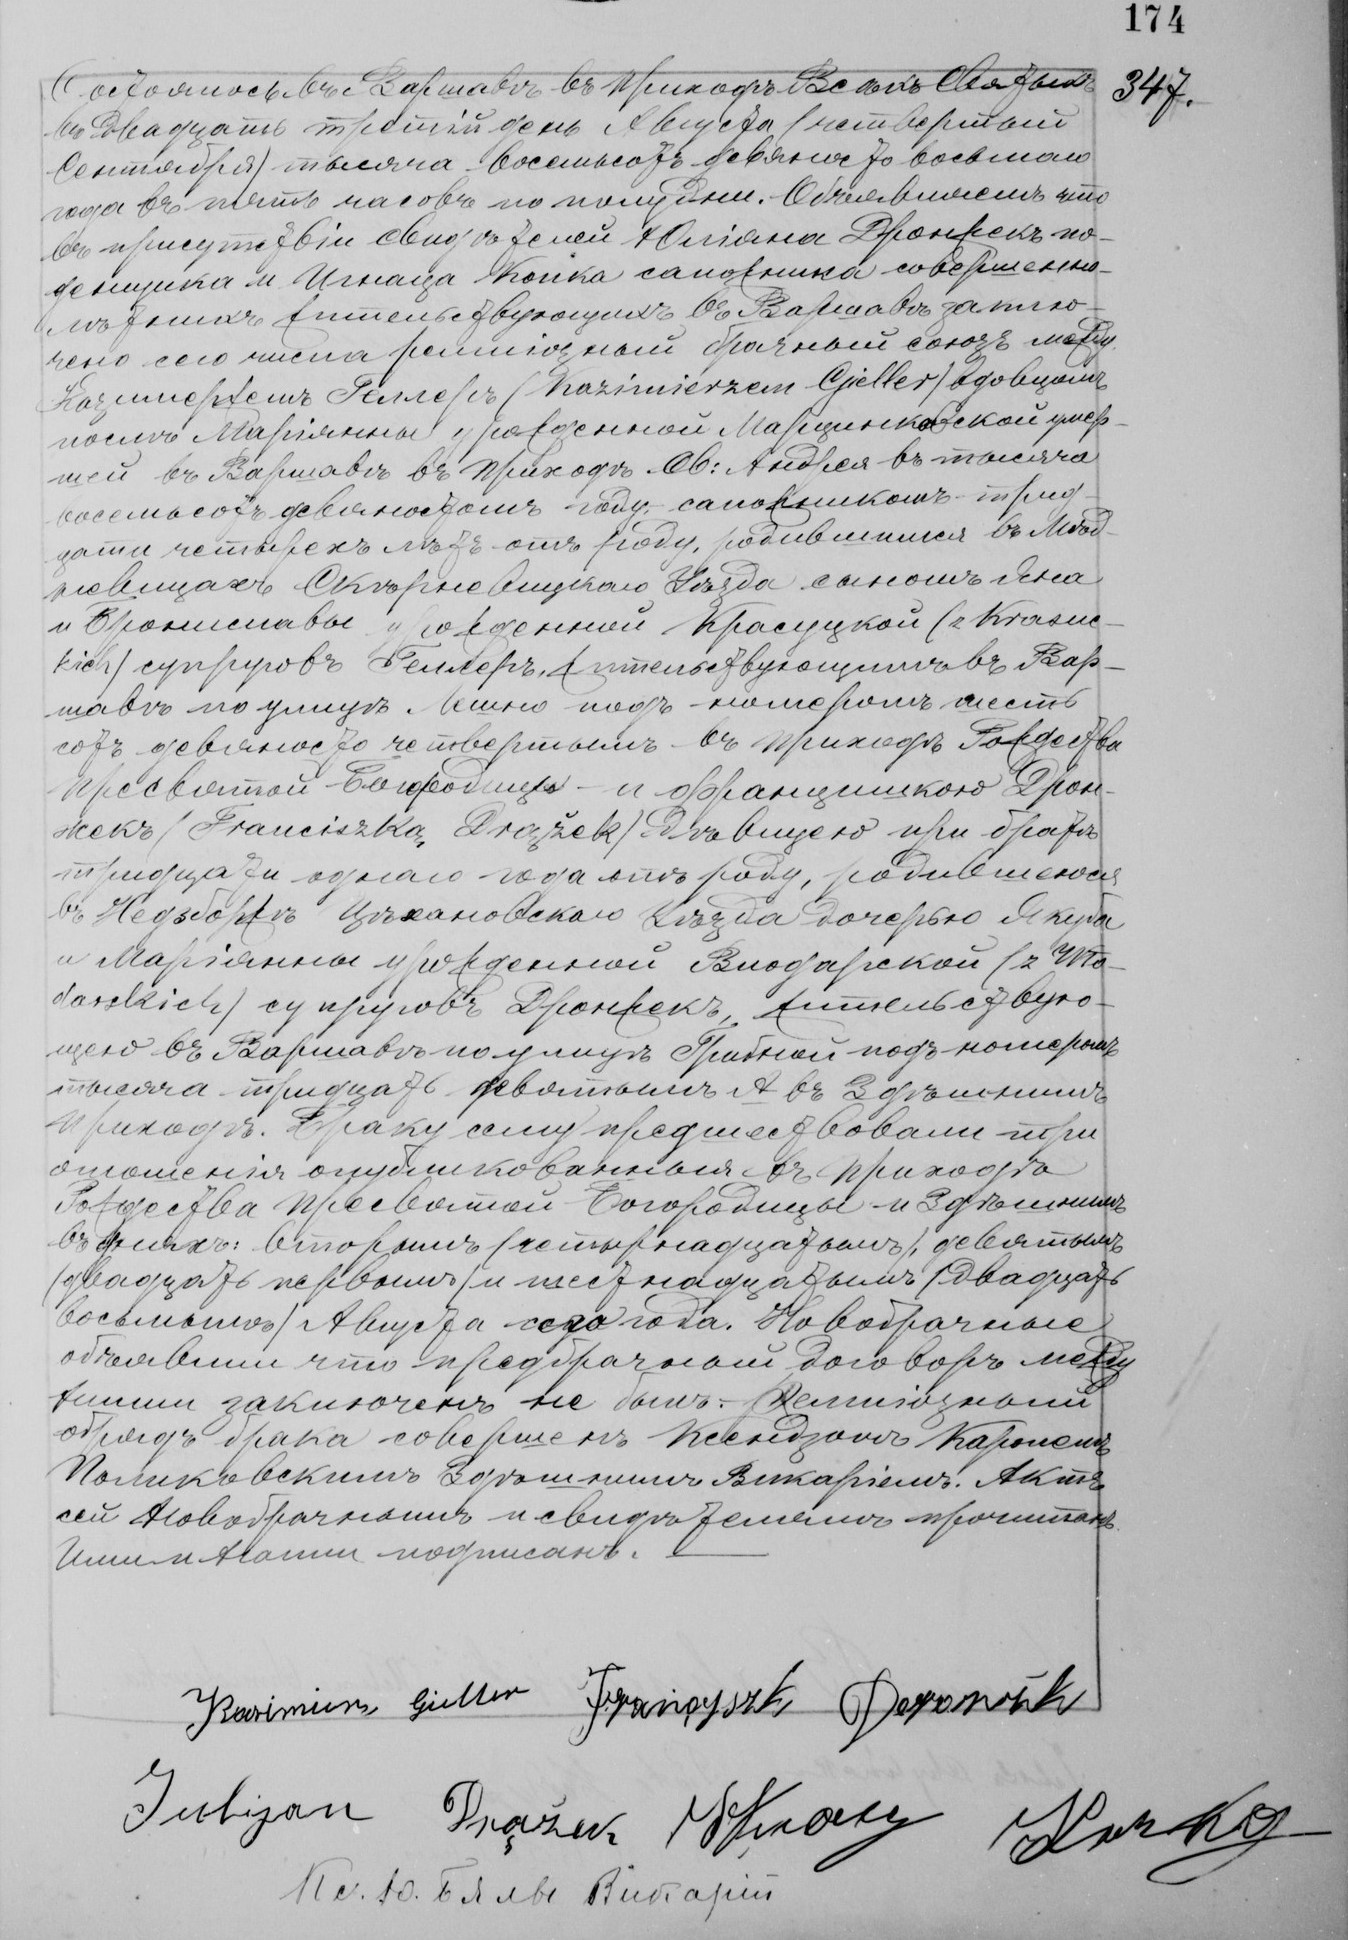 174
347.
Состоялось въ Варшавѣ въ приходѣ Всѣхъ Святыхъ
въ двадцать третій день Августа (четвертый
Сентября) тысяча восемьсотъ девяносто восьмаго
года въ пять часовъ по полудни. Объявляемъ что
въ присутствіи свидѣтелей Юліяна Дронжекъ по-
денщика и Игнаца Конка сапожника совершенно-
лѣтнихъ жительствующихъ въ Варшавѣ заклю-
чено сего числа религіозный брачный союзъ между
Казимержемъ Геллеръ (Kazimierzem Gieller) вдовцомъ
послѣ Маріянны урожденной Марцинковской умер-
шей въ Варшавѣ въ приходѣ Св: Андрея въ тысяча
восемьсотъ девяностомъ году, сапожникомъ трид-
цати четырехъ лѣтъ отъ роду, родившимся въ
Скѣрневицкаго Уѣзда сыномъ Яна
и Брониславы урожденной Красуцкой (z Krasuc-
kich) супруговъ Геллеръ, жительствующимъ въ Вар-
шавѣ по улицѣ Лешно подъ номеромъ шесть
сотъ девяносто четвертымъ въ приходѣ Рождества
Пресвятой Богородицы – и Францишкою Дрон-
жекъ (Franciszką Drążek) дѣвицею при братѣ
тридцати однаго года отъ роду, родившеюся
въ Недзборжѣ Цѣхановскаго Уѣзда дочерью Якуба
и Маріянны урожденной Влодарской (z Wło-
darskich) супруговъ Дронжекъ, жительствую-
щею въ Варшавѣ по улицѣ Грибной подъ номеромъ
тысяча тридцать девятымъ А въ Здѣшнимъ
приходѣ. Браку сему предшествовали три
оглашенія опубликованныя въ приходѣ
Рождества Пресвятой Богородицы и Здѣшнимъ
въ дняхъ: вторымъ (четырнадцатымъ), девятымъ
(двадцать первымъ) и шестнадцатымъ (двадцать
восьмымъ) Августа сего года. Новобрачные
объявили что предбрачный договоръ между
ними заключенъ не былъ. Религіозный
обрядъ брака совершенъ Ксендзомъ Каролемъ
Здѣшнимъ Викаріемъ. Актъ
сей Новобрачнымъ и свидѣтелямъ прочитанъ.
Ими и Нами подписанъ.
Kazimierz Gieller Deronżk
Julijan Drążek
Кс. Ю. Викарій